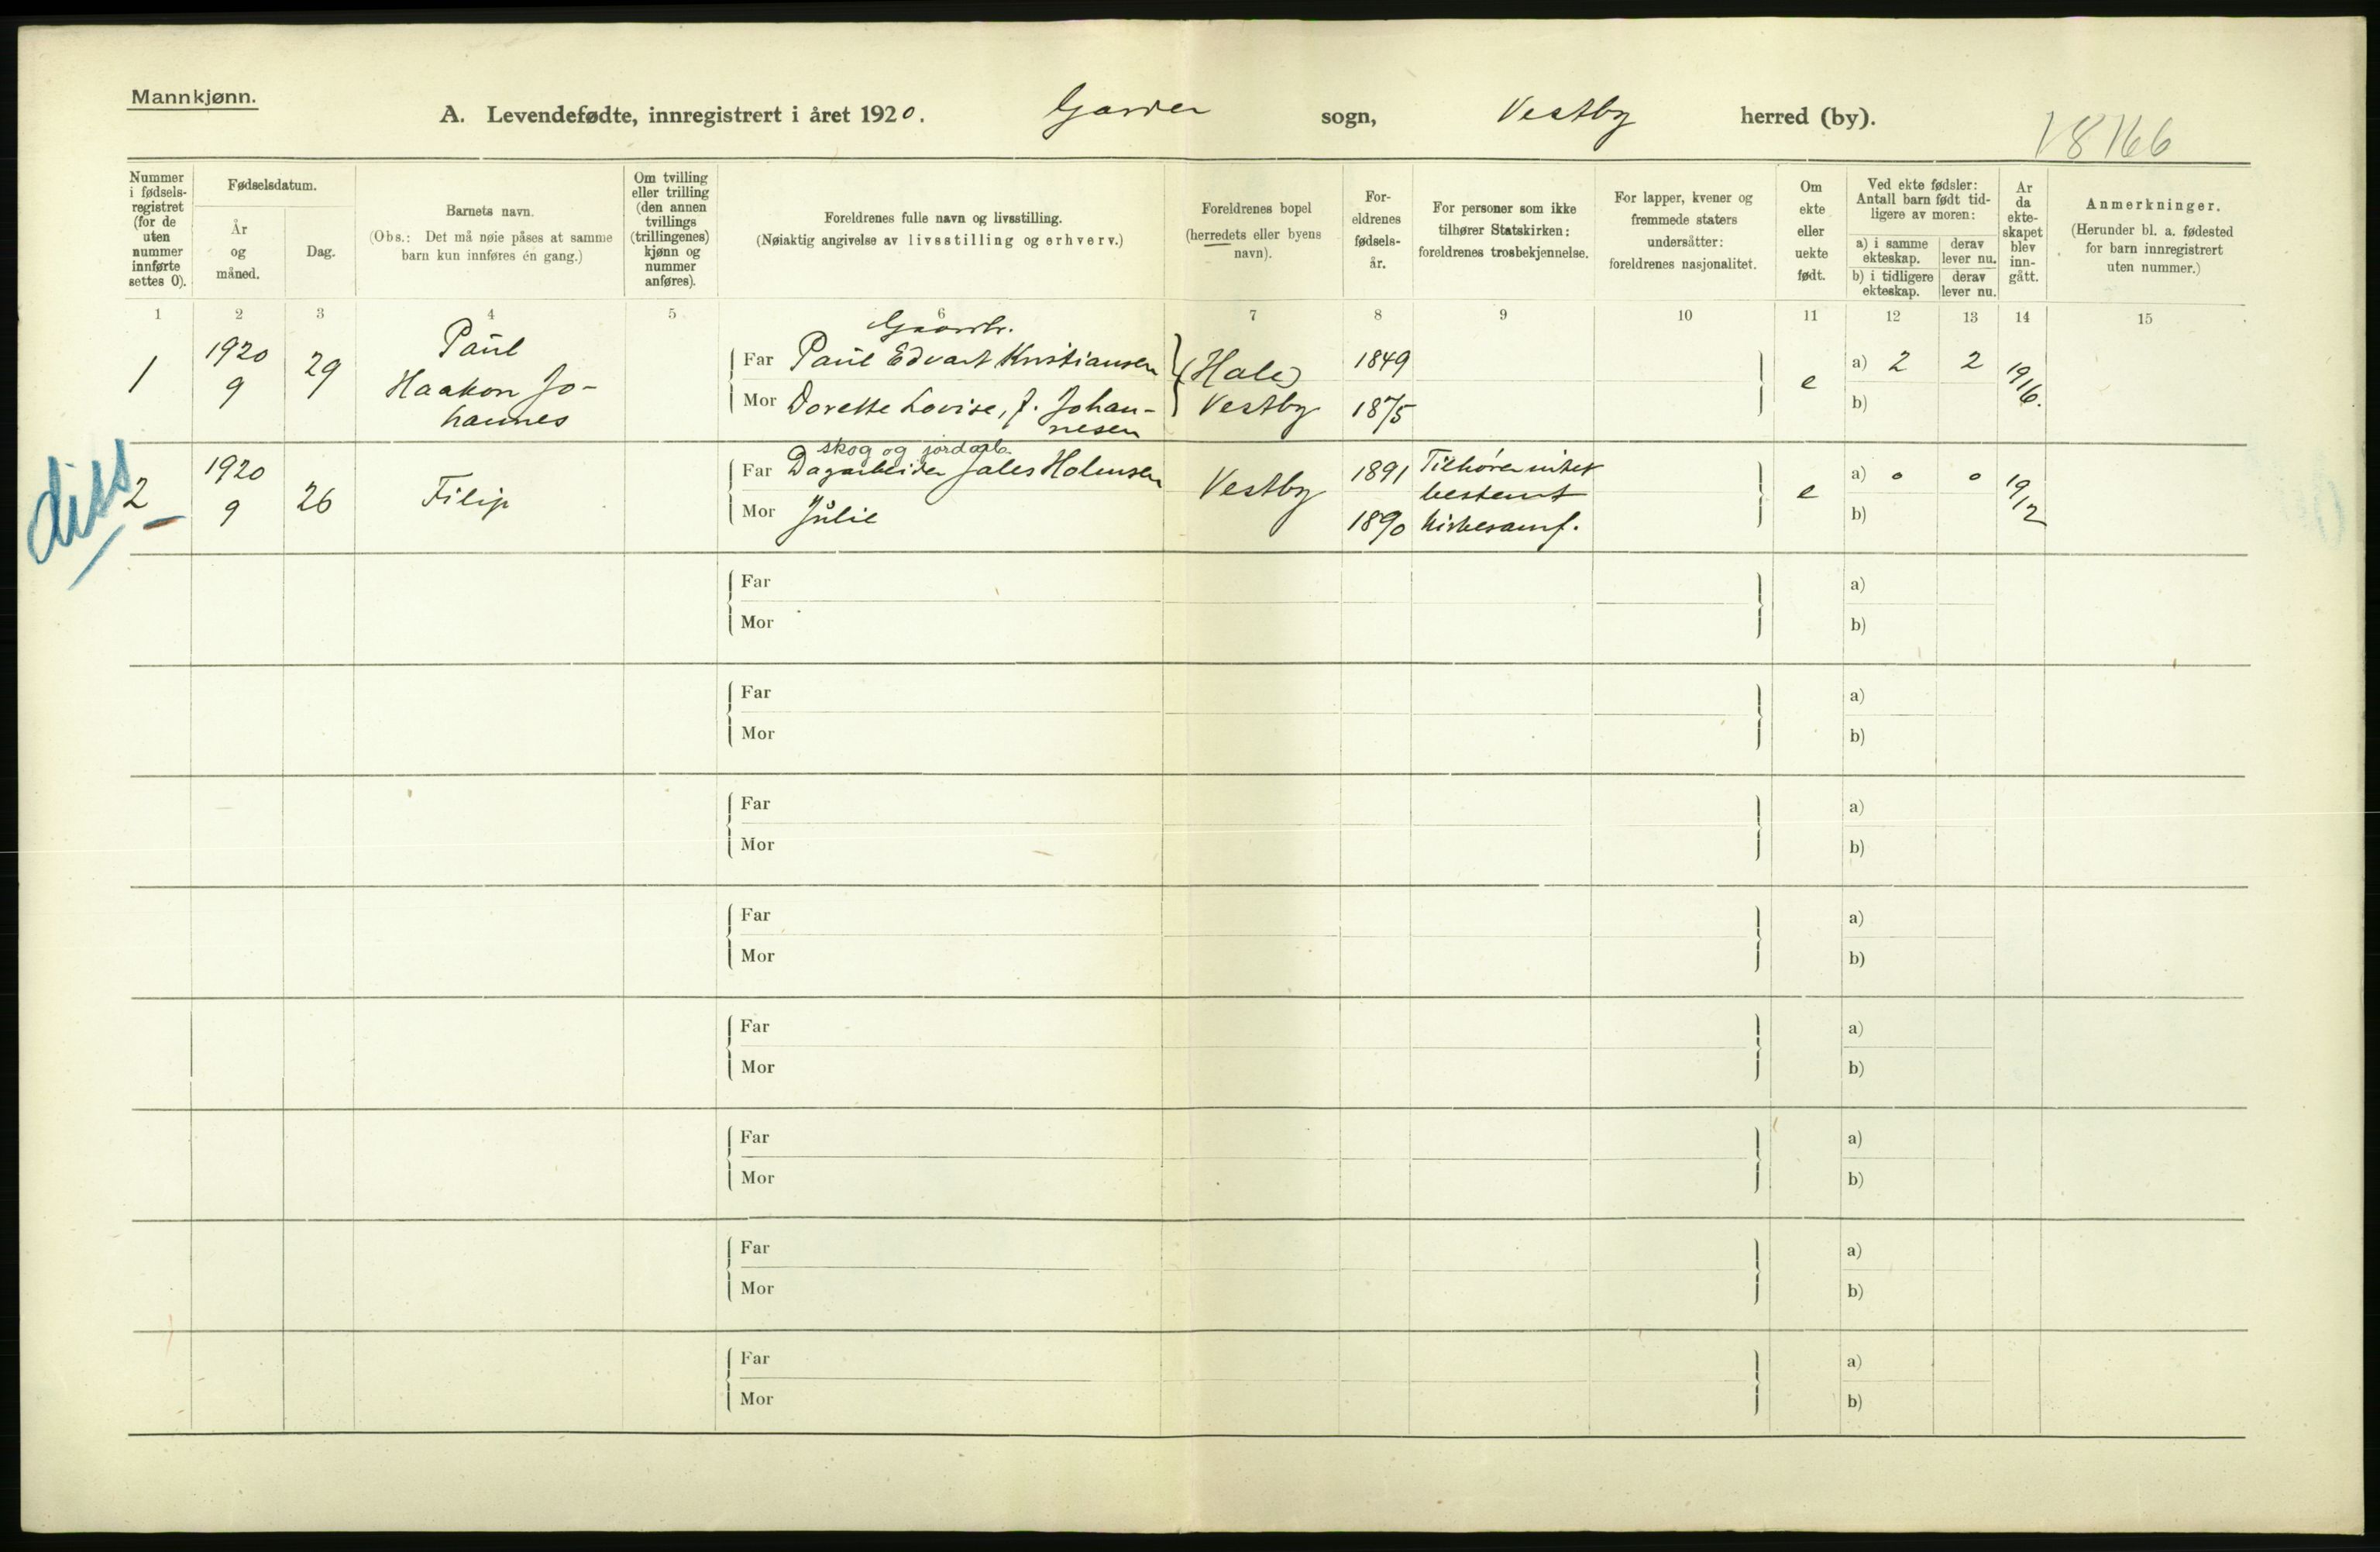 Mannkjønn.
A. Levendefødte, innregistrert i året 1920. Garder sogn, Vestby herred (by).
18766
Nummer i fødsels-registret (for de uten nummer innførte settes 0).
Fødselsdatum.
År og måned.
Dag.
Barnets navn.
(Obs.: Det må nøie påses at samme barn kun innføres én gang.)
Om tvilling eller trilling (den annen tvillings (trillingenes) kjønn og nummer anføres).
Foreldrenes fulle navn og livsstilling.
(Nøiaktig angivelse av livsstilling og erhverv.)
Foreldrenes bopel (herredets eller byens navn).
For-eldrenes fødsels-år.
For personer som ikke tilhører Statskirken: foreldrenes trosbekjennelse.
For lapper, kvener og fremmede staters undersåtter: foreldrenes nasjonalitet.
Om ekte eller uekte født.
Ved ekte fødsler: Antall barn født tid-ligere av moren:
a) i samme ekteskap.
derav lever nu.
b) i tidligere ekteskap.
derav lever nu.
Ar da ekte-skapet blev inn-gått.
Anmerkninger.
(Herunder bl. a. fødested for barn innregistrert uten nummer.)
1 2 3 4 5 6 7 8 9 10 11 12 13 14 15
Gaardbr.
1 1920 9 29 Paul Haakon Jo-hannes
Far Paul Edvart Kristiansen (Hale) 1849
Mor Dorette Lovise, f. Johan-nesen Vestby 1875
e a) 2 2 1916.
b)
diss
skog og jordarb.
2 1920 9 26 Filip
Far Dagarbeider Jales Holmsen Vestby 1891 Tilhører intet bestemt
Mor Julie 1890 kirkesamf.
e a) 0 0 1912
b)
Far a)
Mor b)
Far a)
Mor b)
Far a)
Mor b)
Far a)
Mor b)
Far a)
Mor b)
Far a)
Mor b)
Far a)
Mor b)
Far a)
Mor b)